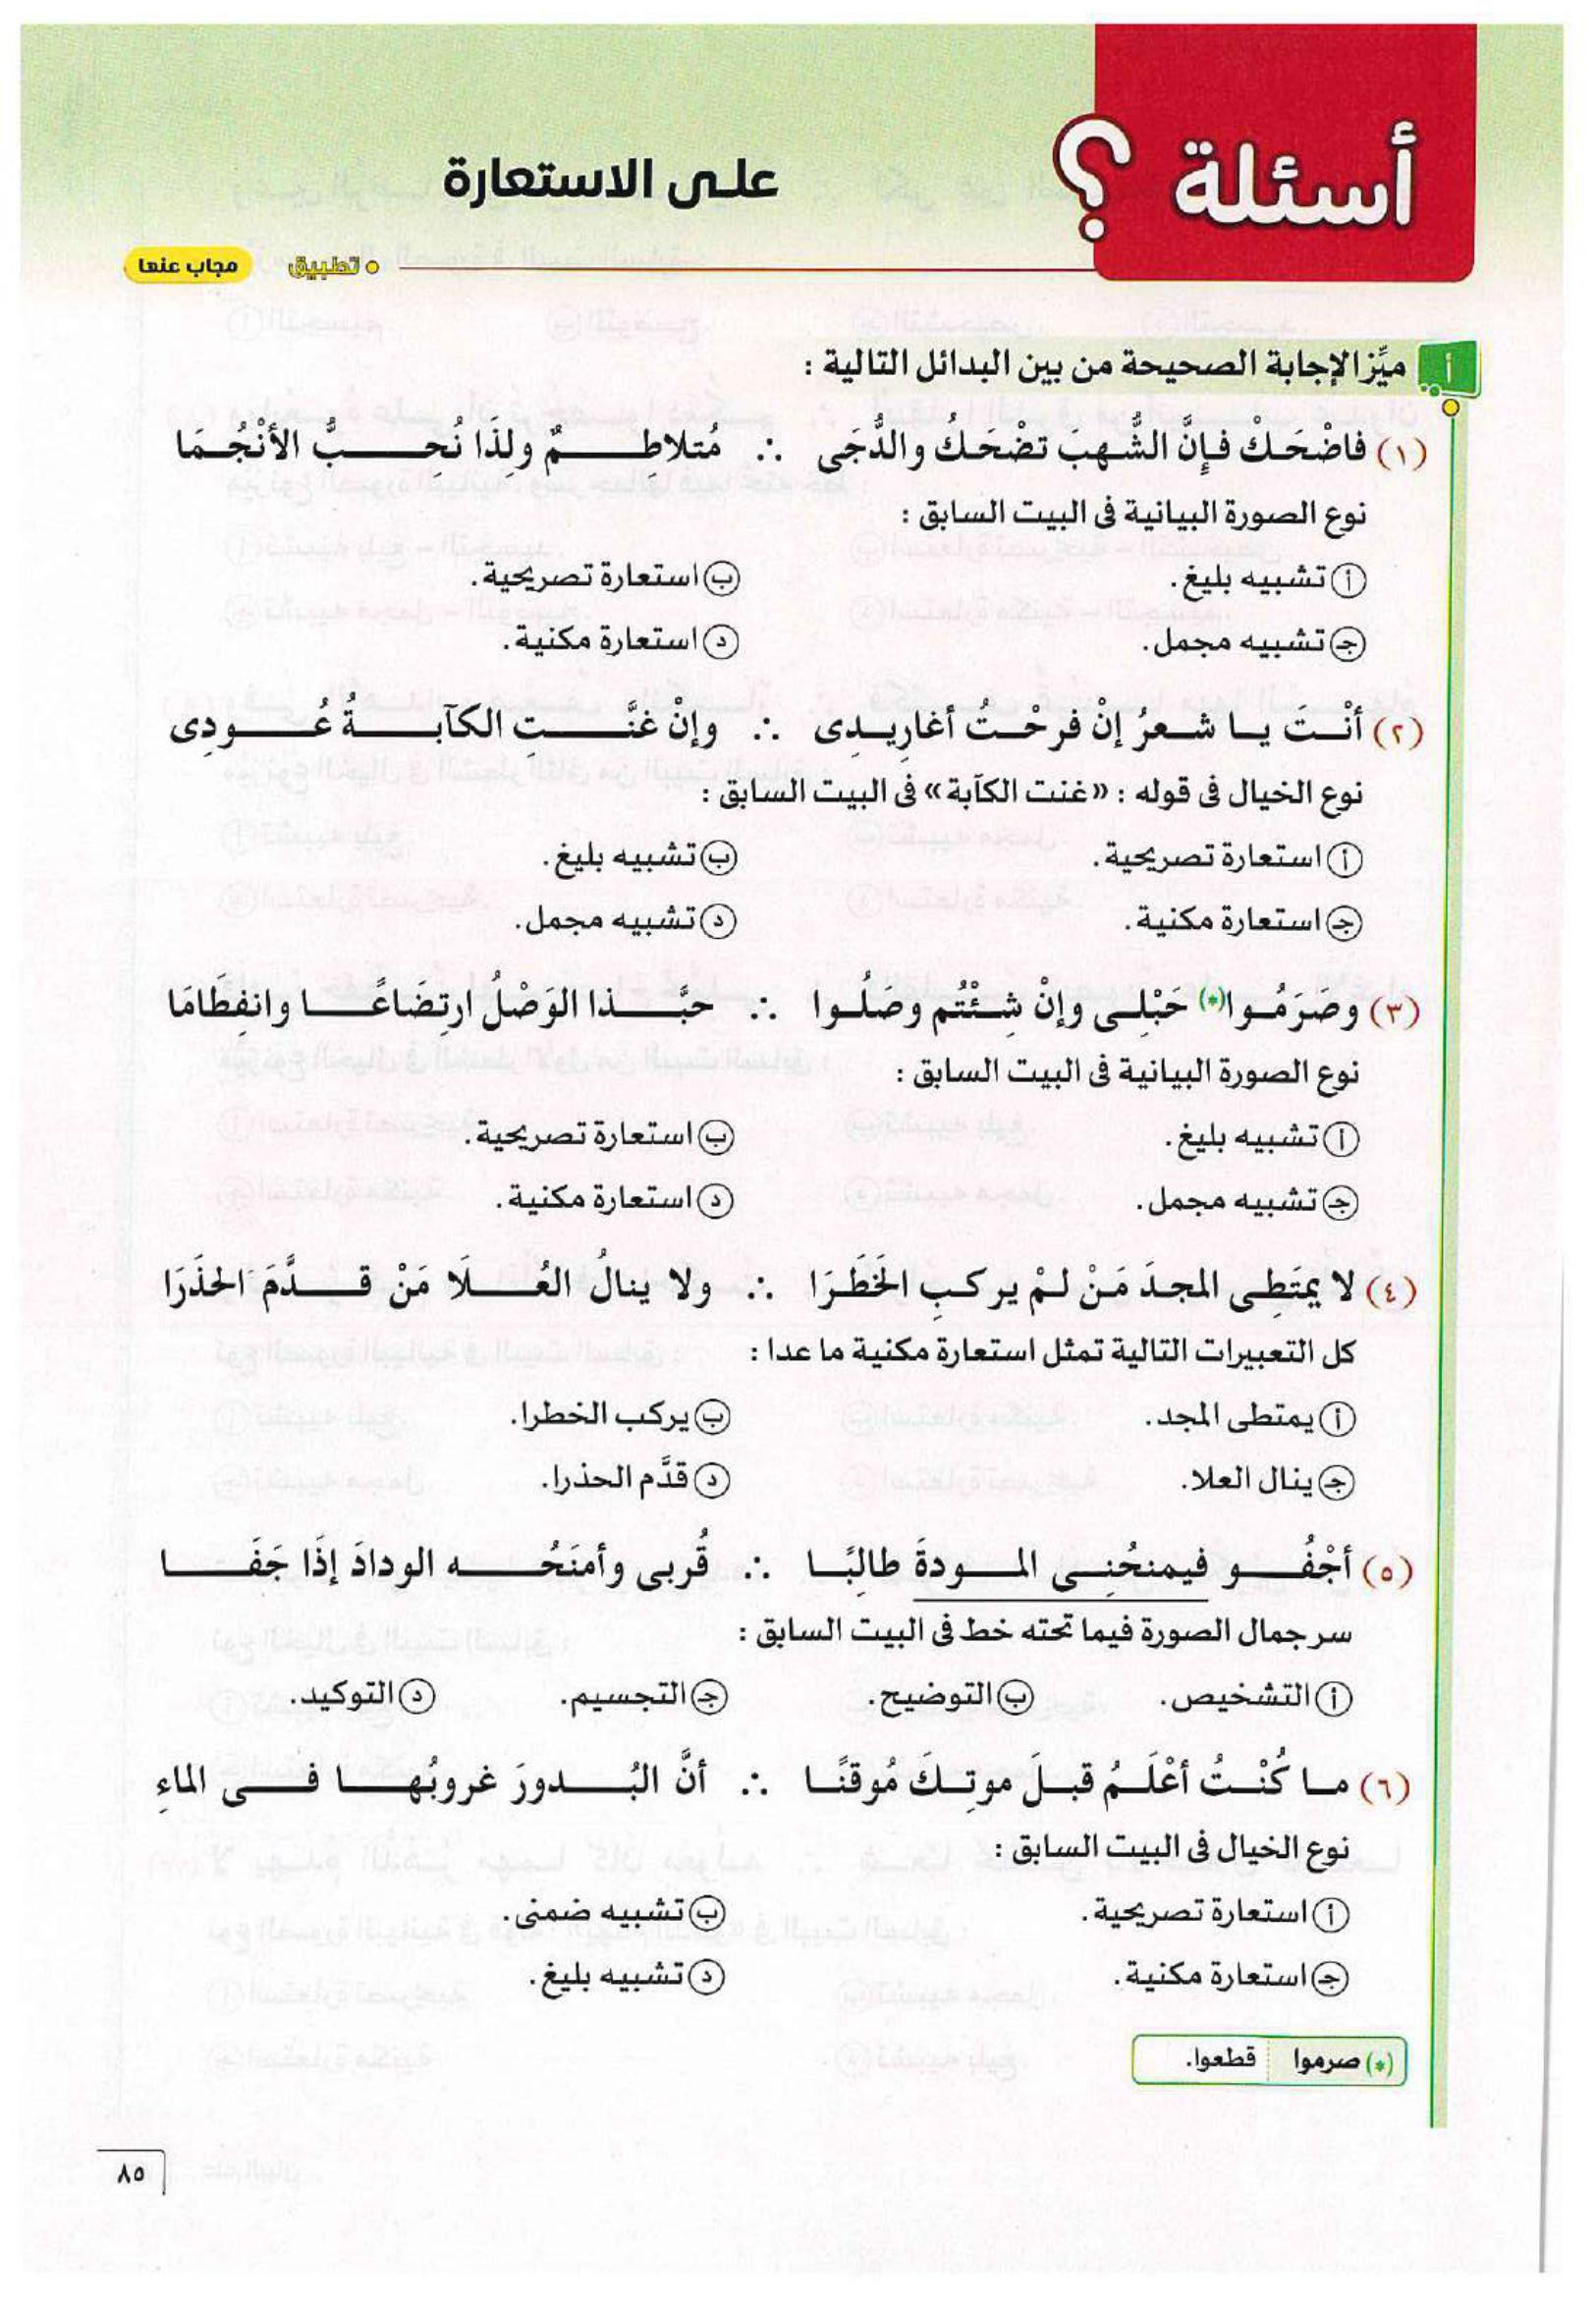 أسئلة ؟
على الاستعارة
• تطبيق مجاب عنها
أ ميِّز الإجابة الصحيحة من بين البدائل التالية :
(١) فاضْحَكْ فإنَّ الشُّهبَ تضْحَكُ والدُّجَى ∴ مُتلاطِمٌ ولِذَا نُحِبُّ الأنْجُمَا
نوع الصورة البيانية فى البيت السابق :
أ تشبيه بليغ. ب استعارة تصريحية.
ج تشبيه مجمل. د استعارة مكنية.
(٢) أنْتَ يا شعرُ إنْ فرحْتُ أغارِيدِى ∴ وإنْ غنَّتِ الكآبةُ عُودِى
نوع الخيال فى قوله : «غنت الكآبة» فى البيت السابق :
أ استعارة تصريحية. ب تشبيه بليغ.
ج استعارة مكنية. د تشبيه مجمل.
(٣) وصَرَمُوا(*) حَبْلِى وإنْ شِئْتُم وصَلُوا ∴ حبَّذا الوَصْلُ ارتِضَاعًا وانفِطَامَا
نوع الصورة البيانية فى البيت السابق :
أ تشبيه بليغ. ب استعارة تصريحية.
ج تشبيه مجمل. د استعارة مكنية.
(٤) لا يمتَطِى المجدَ مَنْ لمْ يركبِ الخَطَرَا ∴ ولا ينالُ العُلَا مَنْ قدَّمَ الحذَرَا
كل التعبيرات التالية تمثل استعارة مكنية ما عدا :
أ يمتطى المجد. ب يركب الخطرا.
ج ينال العلا. د قدَّم الحذرا.
(٥) أجْفُو فيمنحُنِى المودةَ طالِبًا ∴ قُربى وأمنَحُه الودادَ إذَا جَفَا
سر جمال الصورة فيما تحته خط فى البيت السابق :
أ التشخيص. ب التوضيح. ج التجسيم. د التوكيد.
(٦) ما كُنْتُ أعْلَمُ قبلَ موتِكَ مُوقنًا ∴ أنَّ البُدورَ غروبُها فى الماءِ
نوع الخيال فى البيت السابق :
أ استعارة تصريحية. ب تشبيه ضمنى.
ج استعارة مكنية. د تشبيه بليغ.
(*) صرموا قطعوا.
٨٥